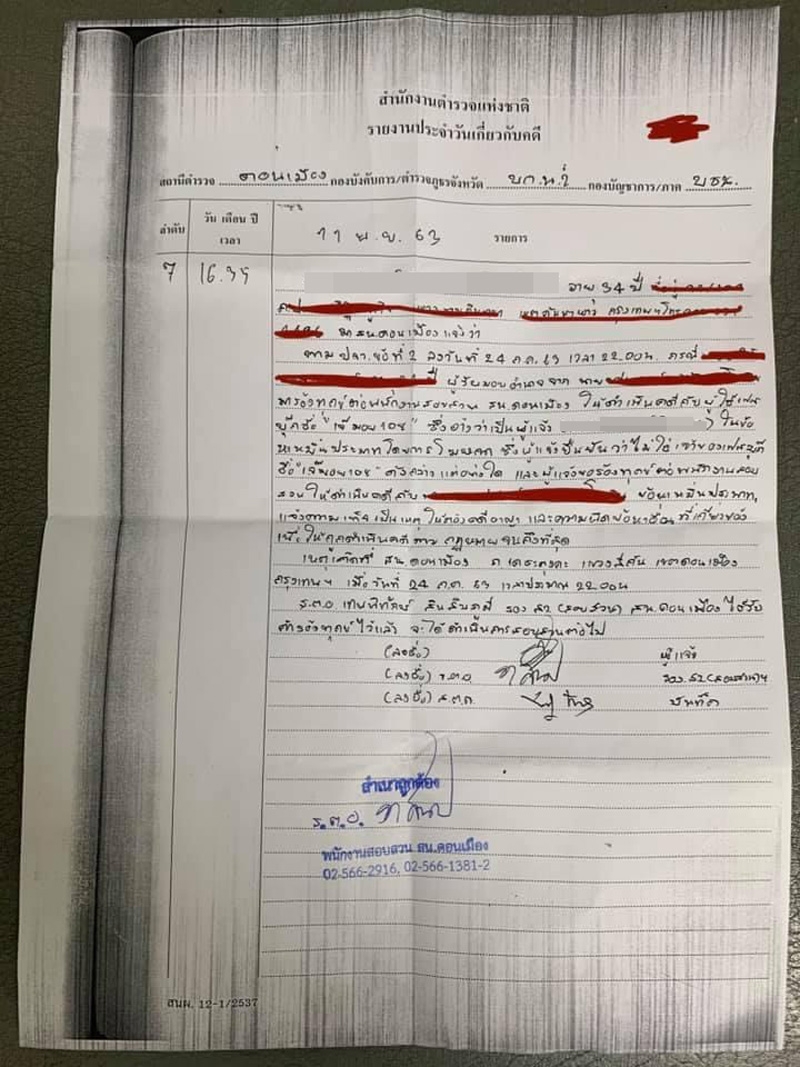 สำนักงานตำรวจแห่งชาติ
รายงานประจำวันเกี่ยวกับคดี
สถานีตำรวจ ดอนเมือง กองบังคับการ/ตำรวจภูธรจังหวัด บก.น.2 กองบัญชาการ/ภาค บชน.
ลำดับ
วัน เดือน ปี
เวลา
11 พ.ย. 63 รายการ
7 16.35
อายุ 34 ปี
มา สน.ดอนเมือง แจ้งว่า
ตาม ปจว. ข้อที่ 2 ลงวันที่ 24 ต.ค. 63 เวลา 22.00 น. กรณี
ผู้รับมอบอำนาจจาก นาย
มาร้องทุกข์ต่อพนักงานสอบสวน สน.ดอนเมือง ให้ดำเนินคดีกับ ผู้ใช้เฟส
บุ๊กชื่อ "เจ๊มอย108" ซึ่งอ้างว่าเป็นผู้แจ้ง ในข้อ
หาหมิ่นประมาทโดยการโฆษณา ซึ่งผู้แจ้งยืนยันว่าไม่ใช่เจ้าของเฟสบุ๊ก
ชื่อ "เจ๊มอย108" ดังกล่าวแต่อย่างใด และผู้แจ้งขอร้องทุกข์ต่อพนักงานสอบ
สวน ให้ดำเนินคดีกับ ข้อหาหมิ่นประมาท,
แจ้งความเท็จเป็นเหตุให้ต้องคดีอาญา และความผิดข้อหาอื่นที่เกี่ยวข้อง
เพื่อให้ดำเนินคดีตามกฎหมายจนถึงที่สุด
เหตุเกิดที่ สน.ดอนเมือง ถ.เตชะตุงคะ แขวงสีกัน เขตดอนเมือง
กรุงเทพฯ เมื่อวันที่ 24 ต.ค. 63 เวลาประมาณ 22.00 น.
ร.ต.อ. รอง สว.(สอบสวน) สน.ดอนเมือง ได้รับ
คำร้องทุกข์ไว้แล้ว จะได้ดำเนินการสอบสวนต่อไป
(ลงชื่อ) ผู้แจ้ง
(ลงชื่อ) ร.ต.อ. รอง สว.(สอบสวน)ฯ
(ลงชื่อ) ส.ต.ต. บันทึก
สำเนาถูกต้อง
ร.ต.อ.
พนักงานสอบสวน สน.ดอนเมือง
02-566-2916, 02-566-1381-2
สนผ. 12-1/2537